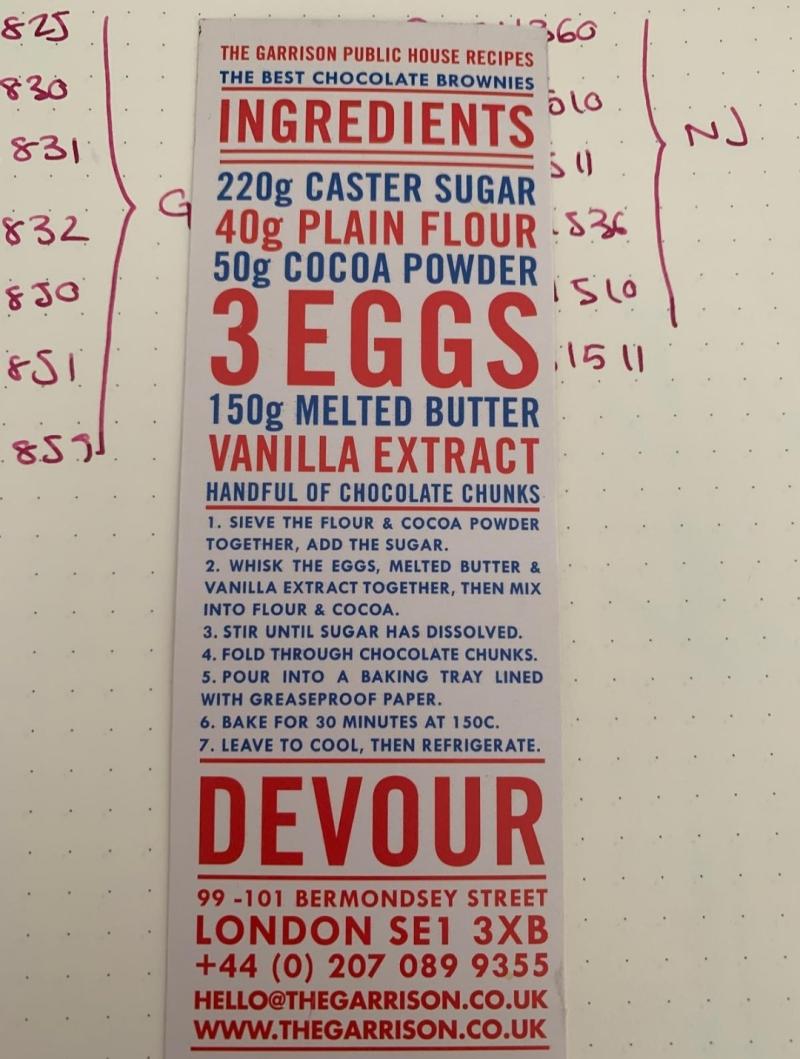 THE GARRISON PUBLIC HOUSE RECIPES
THE BEST CHOCOLATE BROWNIES
INGREDIENTS
220g CASTER SUGAR
40g PLAIN FLOUR
50g COCOA POWDER
3 EGGS
150g MELTED BUTTER
VANILLA EXTRACT
HANDFUL OF CHOCOLATE CHUNKS
1. SIEVE THE FLOUR & COCOA POWDER
TOGETHER, ADD THE SUGAR.
2. WHISK THE EGGS, MELTED BUTTER &
VANILLA EXTRACT TOGETHER, THEN MIX
INTO FLOUR & COCOA.
3. STIR UNTIL SUGAR HAS DISSOLVED.
4. FOLD THROUGH CHOCOLATE CHUNKS.
5. POUR INTO A BAKING TRAY LINED
WITH GREASEPROOF PAPER.
6. BAKE FOR 30 MINUTES AT 150C.
7. LEAVE TO COOL, THEN REFRIGERATE.
DEVOUR
99 -101 BERMONDSEY STREET
LONDON SE1 3XB
+44 (0) 207 089 9355
HELLO@THEGARRISON.CO.UK
WWW.THEGARRISON.CO.UK
825
830
831
832
850
851
859
G
NJ